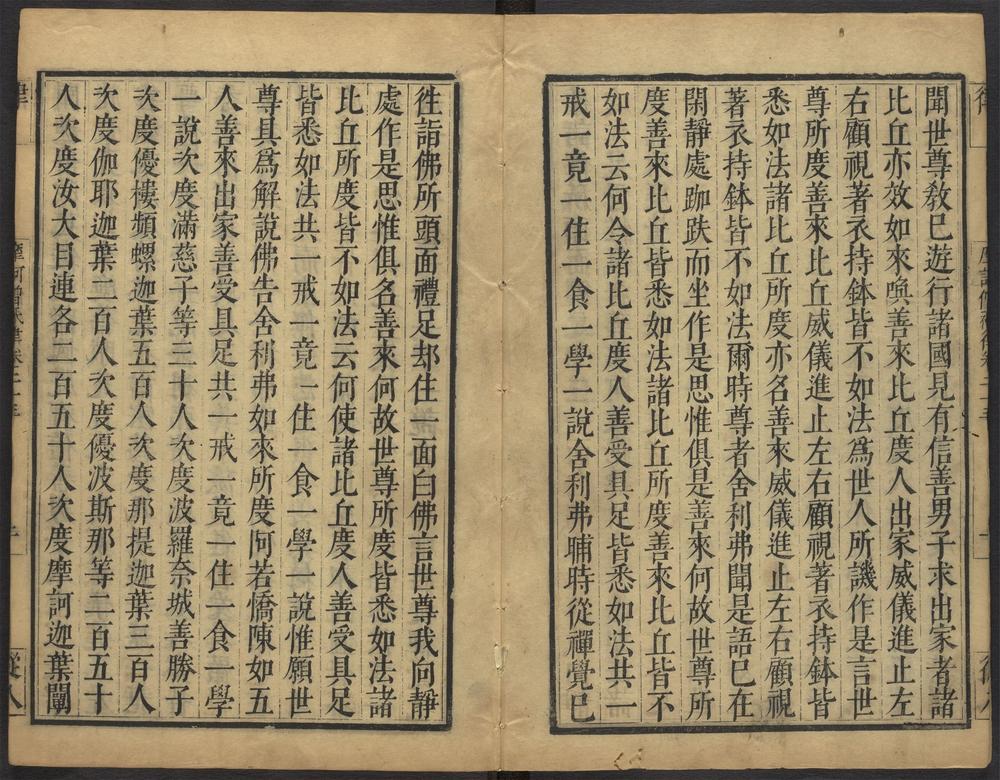 聞世尊教已遊行諸國見有信善男子求出家者諸
比丘亦效如來喚善來比丘度人出家威儀進止左
右顧視著衣持鉢皆不如法爲世人所譏作是言世
尊所度善來比丘威儀進止左右顧視著衣持鉢皆
悉如法諸比丘所度亦名善來威儀進止左右顧視
著衣持鉢皆不如法爾時尊者舍利弗聞是語已在
閑靜處跏趺而坐作是思惟俱是善來何故世尊所
度善來比丘皆悉如法諸比丘所度善來比丘皆不
如法云何令諸比丘度人善受具足皆悉如法共一
戒一竟一住一食一學一說舍利弗晡時從禪覺已
往詣佛所頭面禮足却住一面白佛言世尊我向靜
處作是思惟俱名善來何故世尊所度皆悉如法諸
比丘所度皆不如法云何使諸比丘度人善受具足
皆悉如法共一戒一竟一住一食一學一說惟願世
尊具爲解說佛告舍利弗如來所度阿若憍陳如五
人善來出家善受具足共一戒一竟一住一食一學
一說次度滿慈子等三十人次度波羅奈城善勝子
次度優樓頻螺迦葉五百人次度那提迦葉三百人
次度伽耶迦葉二百人次度優波斯那等二百五十
人次度汝大目連各二百五十人次度摩訶迦葉闡